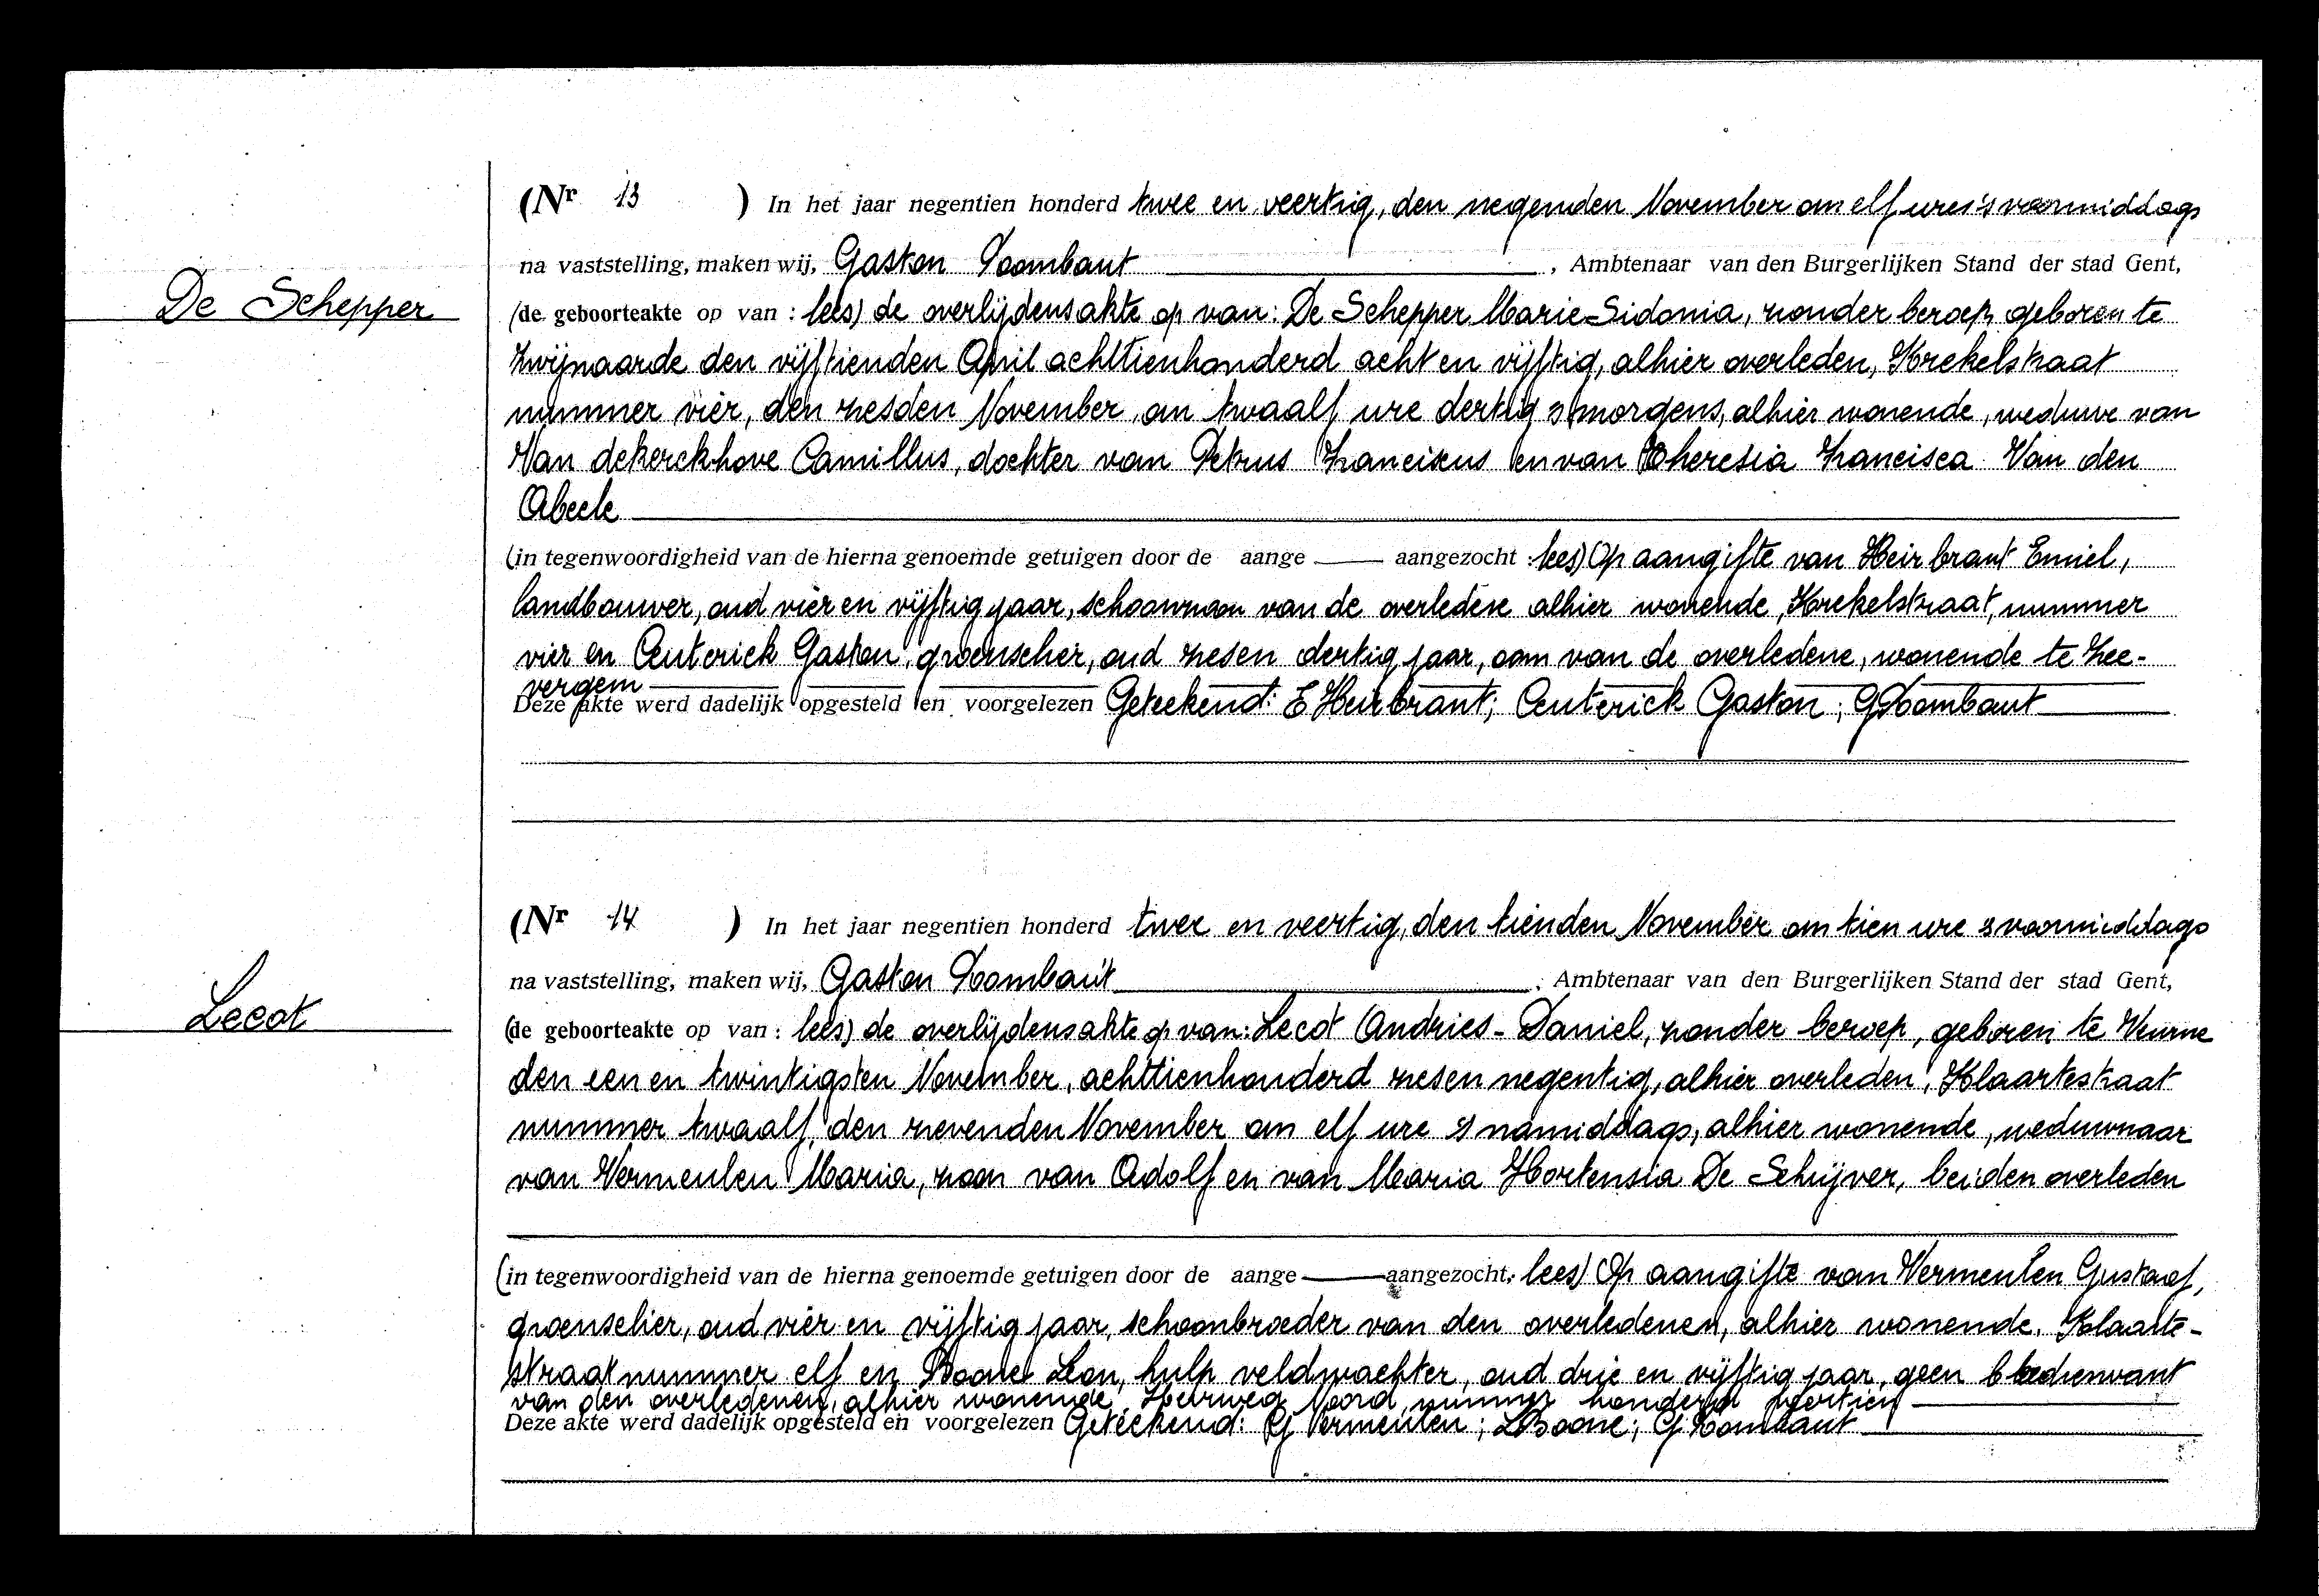 (Nr 13 ) In het jaar negentien honderd twee en veertig, den negenden November om elf ures 's voormiddags
na vaststelling, maken wij, Gaston Toombaut , Ambtenaar van den Burgerlijken Stand der stad Gent,
De Schepper
(de geboorteakte op van : lees) de overlijdensakte op van: De Schepper Marie-Sidonia, zonder beroep, geboren te
Zwijnaarde den vijftienden April achttienhonderd acht en vijftig, alhier overleden, Krekelstraat
nummer vier, den zesden November, om twaalf ure dertig 's morgens, alhier wonende, weduwe van
Van dekerckhove Camillus, dochter van Petrus Franciscus en van Theresia Francisca Van den
Abeele
(in tegenwoordigheid van de hierna genoemde getuigen door de aange aangezocht : lees) Op aangifte van Heirbrant Emiel,
landbouwer, oud vier en vijftig jaar, schoonzoon van de overledene alhier wonende, Krekelstraat, nummer
vier en Centerick Gaston, groenselier, oud zes en dertig jaar, oom van de overledene, wonende te Zee-
vergem
Deze akte werd dadelijk opgesteld en voorgelezen Geteekend: E Heirbrant; Centerick Gaston; G Toombaut
(Nr 14 ) In het jaar negentien honderd twee en veertig, den tienden November om tien ure 's voormiddags
na vaststelling, maken wij, Gaston Toombaut , Ambtenaar van den Burgerlijken Stand der stad Gent,
Lecot
(de geboorteakte op van : lees) de overlijdensakte op van: Lecot Andries-Daniel, zonder beroep, geboren te Veurne
den een en twintigsten November, achttienhonderd zes en negentig, alhier overleden, Klaartestraat
nummer twaalf, den zevenden November om elf ure 's namiddags, alhier wonende, weduwnaar
van Vermeulen Maria, zoon van Adolf en van Maria Hortensia De Schijver, beiden overleden
(in tegenwoordigheid van de hierna genoemde getuigen door de aange aangezocht: lees) Op aangifte van Vermeulen Gustaaf,
groenselier, oud vier en vijftig jaar, schoonbroeder van den overledenen, alhier wonende, Klaarte-
straat nummer elf en Boone Leon, hulp veldwachter, oud drie en vijftig jaar, geen bloedverwant
van den overledenen, alhier wonende, Heerweg Noord, nummer honderd veertien
Deze akte werd dadelijk opgesteld en voorgelezen Geteekend: G Vermeulen; L Boone; G Toombaut